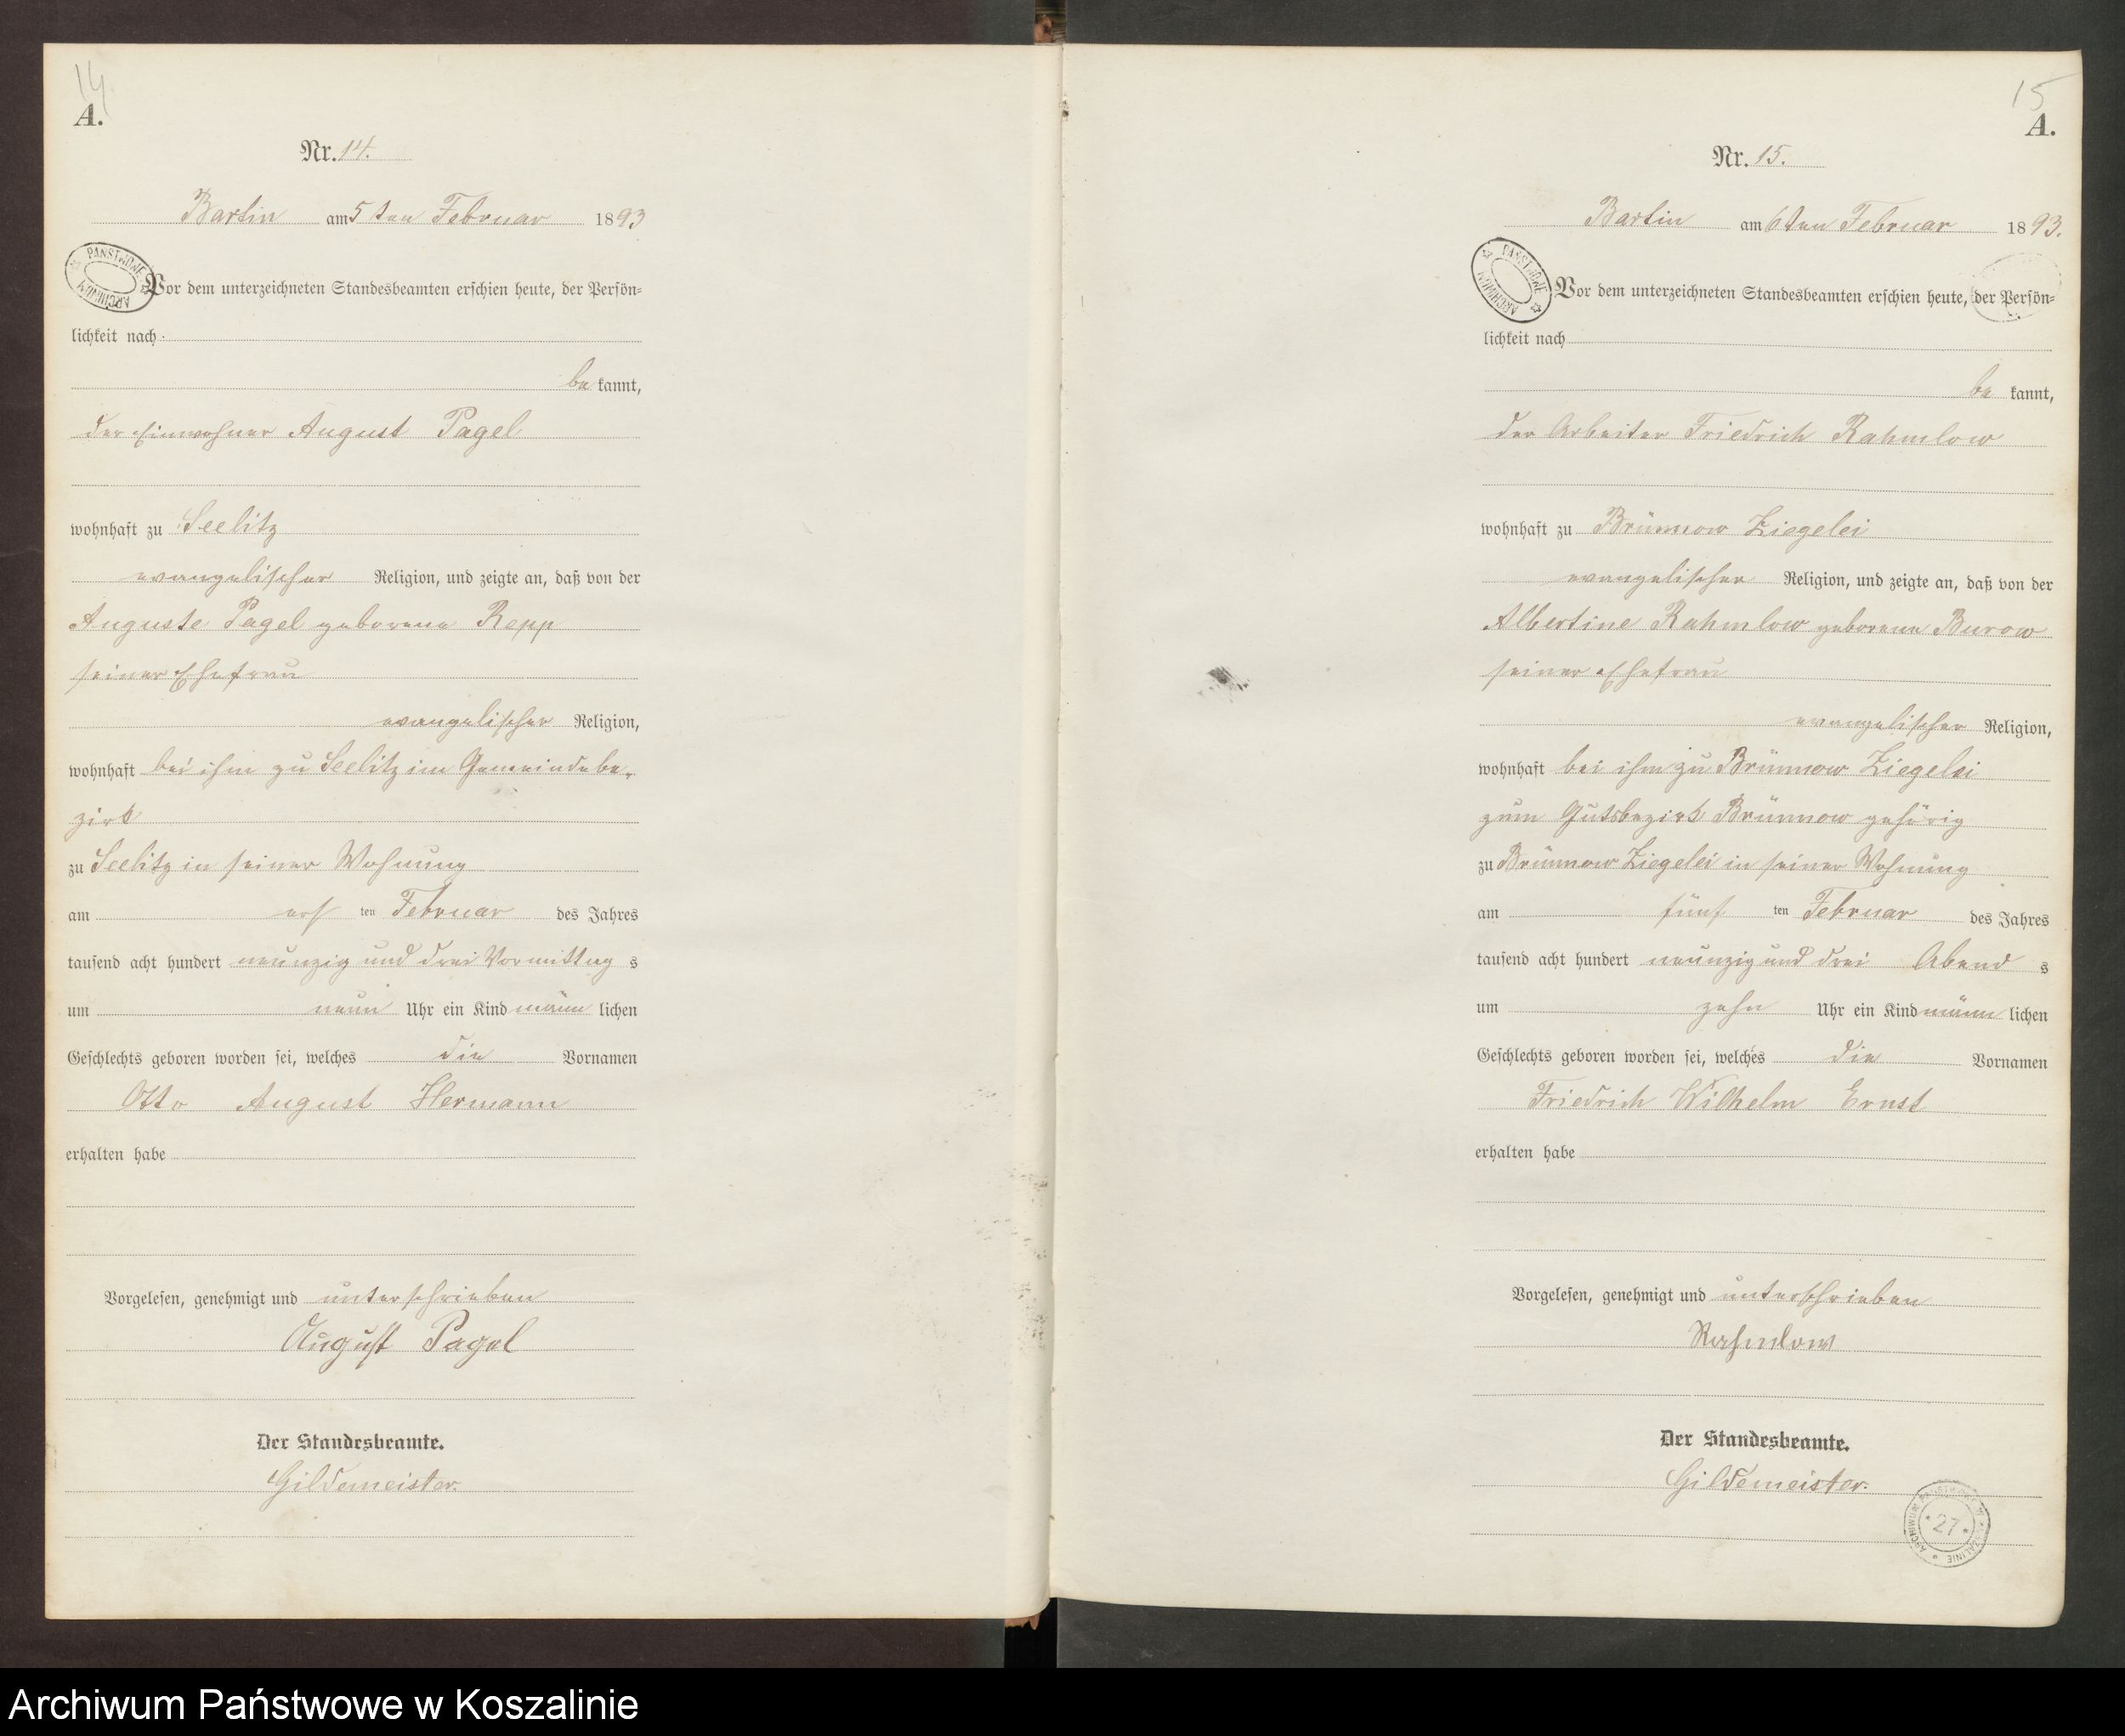 14
A.
Nr. 14.
Bartin am 5ten Februar 1893
PAŃSTWOWE ARCHIWUM
Vor dem unterzeichneten Standesbeamten erschien heute, der Persön-
lichkeit nach
be kannt,
der Einwohner August Pagel
wohnhaft zu Seelitz
evangelischer Religion, und zeigte an, daß von der
Auguste Pagel geborene Repp
seiner Ehefrau
evangelischer Religion,
wohnhaft bei ihm zu Seelitz im Gemeindebe-
zirk
zu Seelitz in seiner Wohnung
am ers ten Februar des Jahres
tausend acht hundert neunzig und drei Vormittag s
um neun Uhr ein Kind männ lichen
Geschlechts geboren worden sei, welches die Vornamen
Otto August Hermann
erhalten habe
Vorgelesen, genehmigt und unterschrieben
August Pagel
Der Standesbeamte.
Gildemeister.
15
A.
Nr. 15.
Bartin am 6ten Februar 1893.
PAŃSTWOWE ARCHIWUM
Vor dem unterzeichneten Standesbeamten erschien heute, der Persön-
lichkeit nach
be kannt,
der Arbeiter Friedrich Rahmlow
wohnhaft zu Brünnow Ziegelei
evangelischer Religion, und zeigte an, daß von der
Albertine Rahmlow geborene Burow
seiner Ehefrau
evangelischer Religion,
wohnhaft bei ihm zu Brünnow Ziegelei
zum Gutsbezirk Brünnow gehörig
zu Brünnow Ziegelei in seiner Wohnung
am fünf ten Februar des Jahres
tausend acht hundert neunzig und drei Abend s
um zehn Uhr ein Kind männ lichen
Geschlechts geboren worden sei, welches die Vornamen
Friedrich Wilhelm Ernst
erhalten habe
Vorgelesen, genehmigt und unterschrieben
Rahmlow
Der Standesbeamte.
Gildemeister.
ARCHIWUM PAŃSTWOWE W KOSZALINIE
27
Archiwum Państwowe w Koszalinie